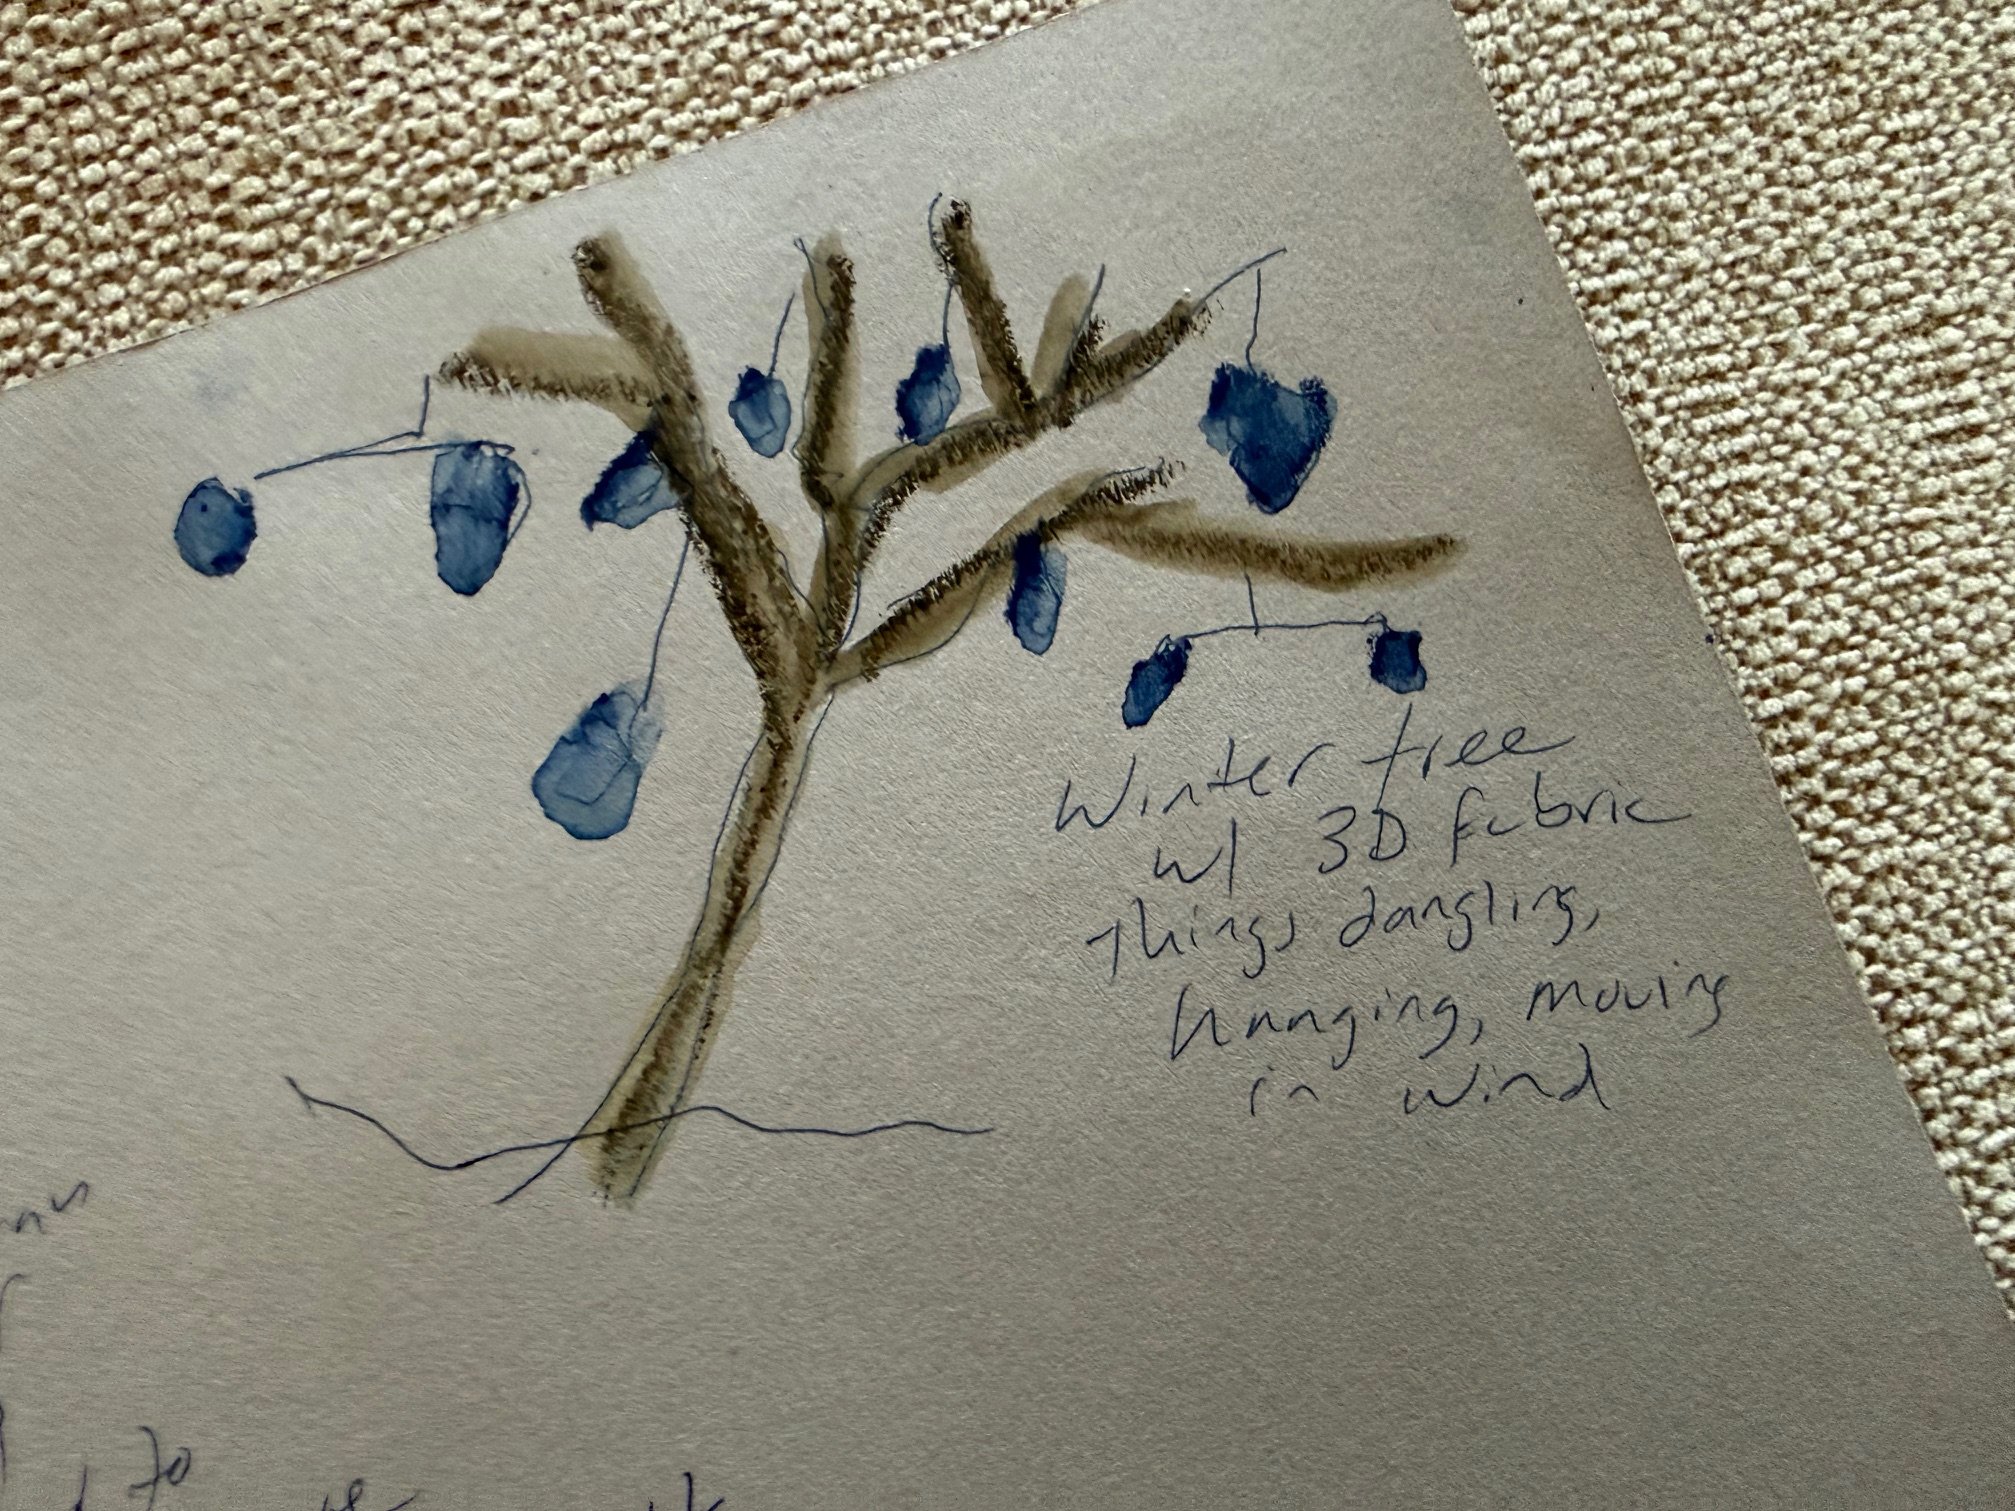 Winter tree
w/ 3D fabric
things dangling,
hanging, moving
in wind
to